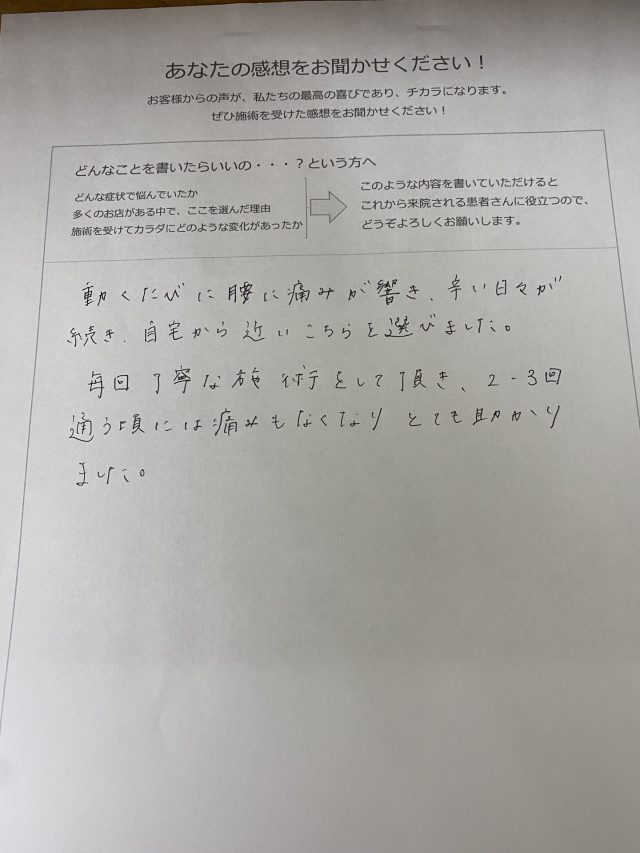 あなたの感想をお聞かせください！
お客様からの声が、私たちの最高の喜びであり、チカラになります。
ぜひ施術を受けた感想をお聞かせください！
どんなことを書いたらいいの・・・？という方へ
どんな症状で悩んでいたか
多くのお店がある中で、ここを選んだ理由
施術を受けてカラダにどのような変化があったか
このような内容を書いていただけると
これから来院される患者さんに役立つので、
どうぞよろしくお願いします。
動くたびに腰に痛みが響き、辛い日々が
続き、自宅から近いこちらを選びました。
毎回丁寧な施術をして頂き、2-3回
通う頃には痛みもなくなりとても助かり
ました。